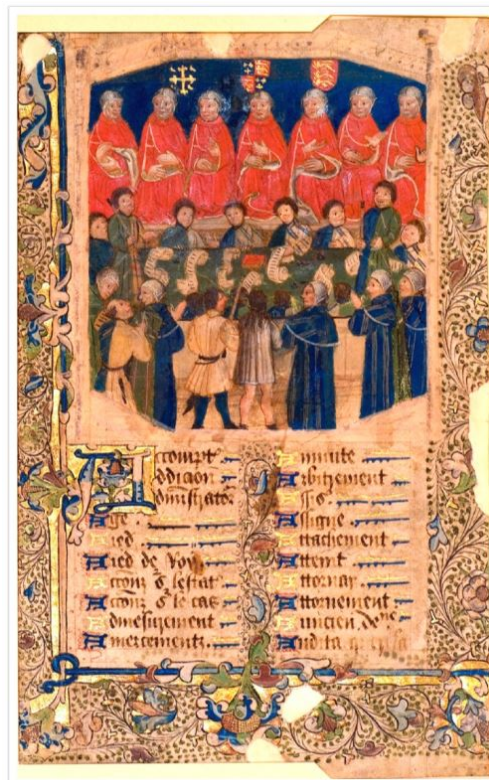 Accompt
ddicion
dministrator
Age
Aied
Aied de Roy
Accion s lestat
Accion s le cas
Admesurement
Amercementz
Annuite
Arbitrement
Assigne
Attachement
Atteint
Attornay
Attornement
Auncien
Audita